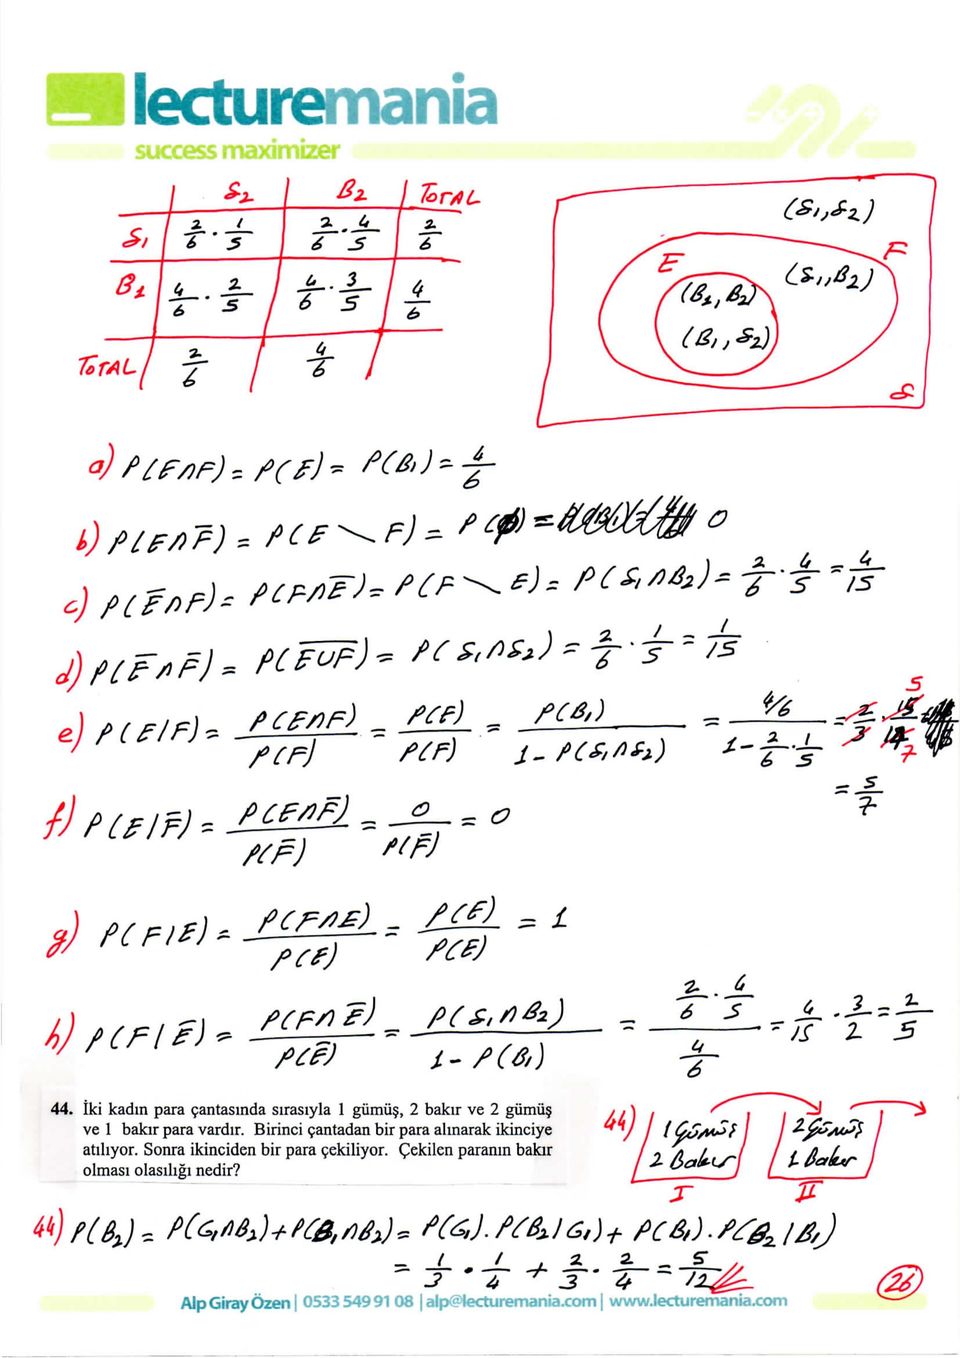 lecturemania
success maximizer
S₂ B₂ TOTAL
S₁ 2/6 · 1/5 2/6 · 4/5 2/6
B₁ 4/6 · 2/5 4/6 · 3/5 4/6
TOTAL 2/6 4/6
(S₁,S₂)
E F
(S₁,B₂)
(B₁,B₂)
(B₁,S₂)
S
a) P(E∩F) = P(E) = P(B₁) = 4/6
b) P(E∩F̅) = P(E \ F) = P(∅) = 0
c) P(E̅∩F) = P(F∩E̅) = P(F \ E) = P(S₁∩B₂) = 2/6 · 4/5 = 4/15
d) P(E̅∩F̅) = P(E̅U̅F̅) = P(S₁∩S₂) = 2/6 · 1/5 = 1/15
e) P(E|F) = P(E∩F)/P(F) = P(E)/P(F) = P(B₁)/(1 - P(S₁∩S₂)) = (4/6)/(1 - 2/6 · 1/5) = 2/3 · 15/14 5 7
= 5/7
f) P(E|F̅) = P(E∩F̅)/P(F̅) = 0/P(F̅) = 0
g) P(F|E) = P(F∩E)/P(E) = P(E)/P(E) = 1
h) P(F|E̅) = P(F∩E̅)/P(E̅) = P(S₁∩B₂)/(1 - P(B₁)) = (2/6 · 4/5)/(4/6) = 4/15 · 3/2 = 2/5
44. İki kadın para çantasında sırasıyla 1 gümüş, 2 bakır ve 2 gümüş
ve 1 bakır para vardır. Birinci çantadan bir para alınarak ikinciye
atılıyor. Sonra ikinciden bir para çekiliyor. Çekilen paranın bakır
olması olasılığı nedir?
44) 1 Gümüş 2 Gümüş
2 Bakır 1 Bakır
I II
44) P(B₂) = P(G₁∩B₂) + P(B₁∩B₂) = P(G₁).P(B₂|G₁) + P(B₁).P(B₂|B₁)
= 1/3 · 1/4 + 2/3 · 2/4 = 5/12
26
Alp Giray Özen | 0533 549 91 08 | alp@lecturemania.com | www.lecturemania.com